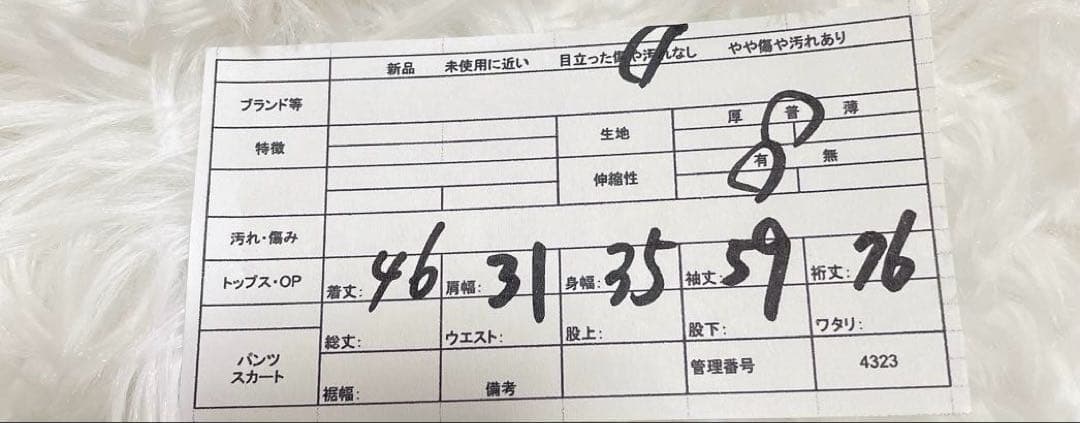 新品 未使用に近い 目立った傷や汚れなし やや傷や汚れあり
ブランド等
特徴 生地 厚 普 薄
伸縮性 有 無
汚れ・傷み
トップス・OP 着丈: 46 肩幅: 31 身幅: 35 袖丈: 59 裄丈: 76
総丈: ウエスト: 股上: 股下: ワタリ:
パンツ
スカート
裾幅: 備考 管理番号 4323